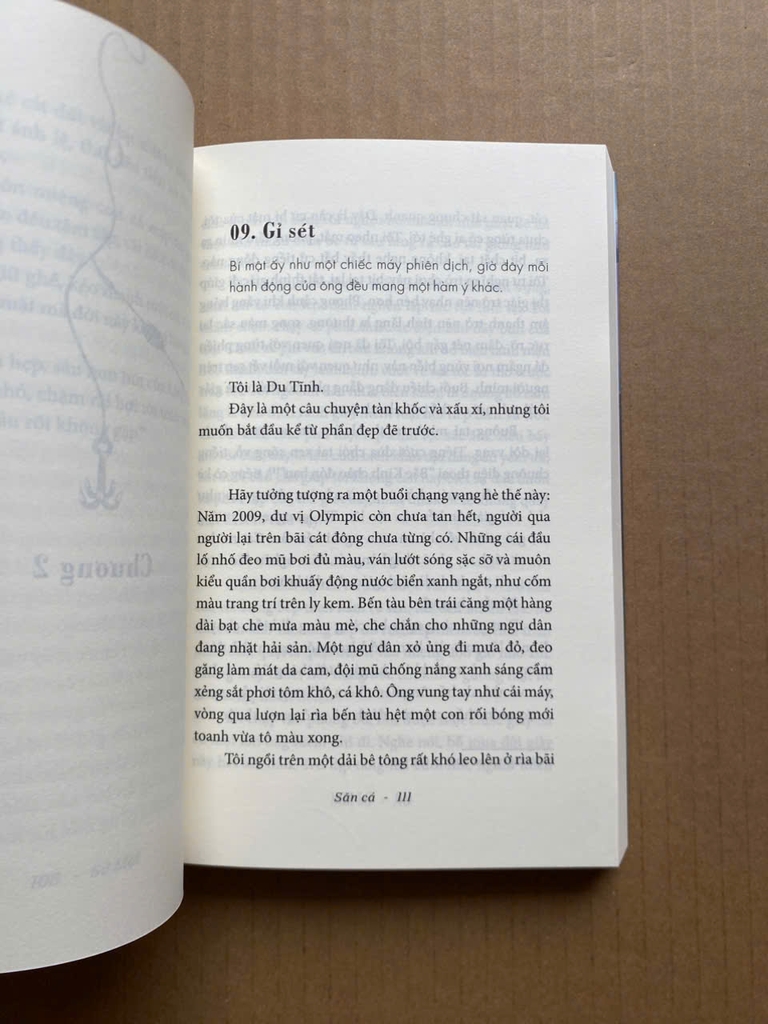 09. Gỉ sét
Bí mật ấy như một chiếc máy phiên dịch, giờ đây mỗi
hành động của ông đều mang một hàm ý khác.
Tôi là Du Tĩnh.
Đây là một câu chuyện tàn khốc và xấu xí, nhưng tôi
muốn bắt đầu kể từ phần đẹp đẽ trước.
Hãy tưởng tượng ra một buổi chạng vạng hè thế này:
Năm 2009, dư vị Olympic còn chưa tan hết, người qua
người lại trên bãi cát đông chưa từng có. Những cái đầu
lố nhố đeo mũ bơi đủ màu, ván lướt sóng sặc sỡ và muôn
kiểu quần bơi khuấy động nước biển xanh ngắt, như cốm
màu trang trí trên ly kem. Bến tàu bên trái căng một hàng
dài bạt che mưa màu mè, che chắn cho những ngư dân
đang nhặt hải sản. Một ngư dân xỏ ủng đi mưa đỏ, đeo
găng làm mát da cam, đội mũ chống nắng xanh sáng cầm
xẻng sắt phơi tôm khô, cá khô. Ông vung tay như cái máy,
vòng qua lượn lại rìa bến tàu hệt một con rối bóng mới
toanh vừa tô màu xong.
Tôi ngồi trên một dải bê tông rất khó leo lên ở rìa bãi
Săn cá - 111
Chương 2